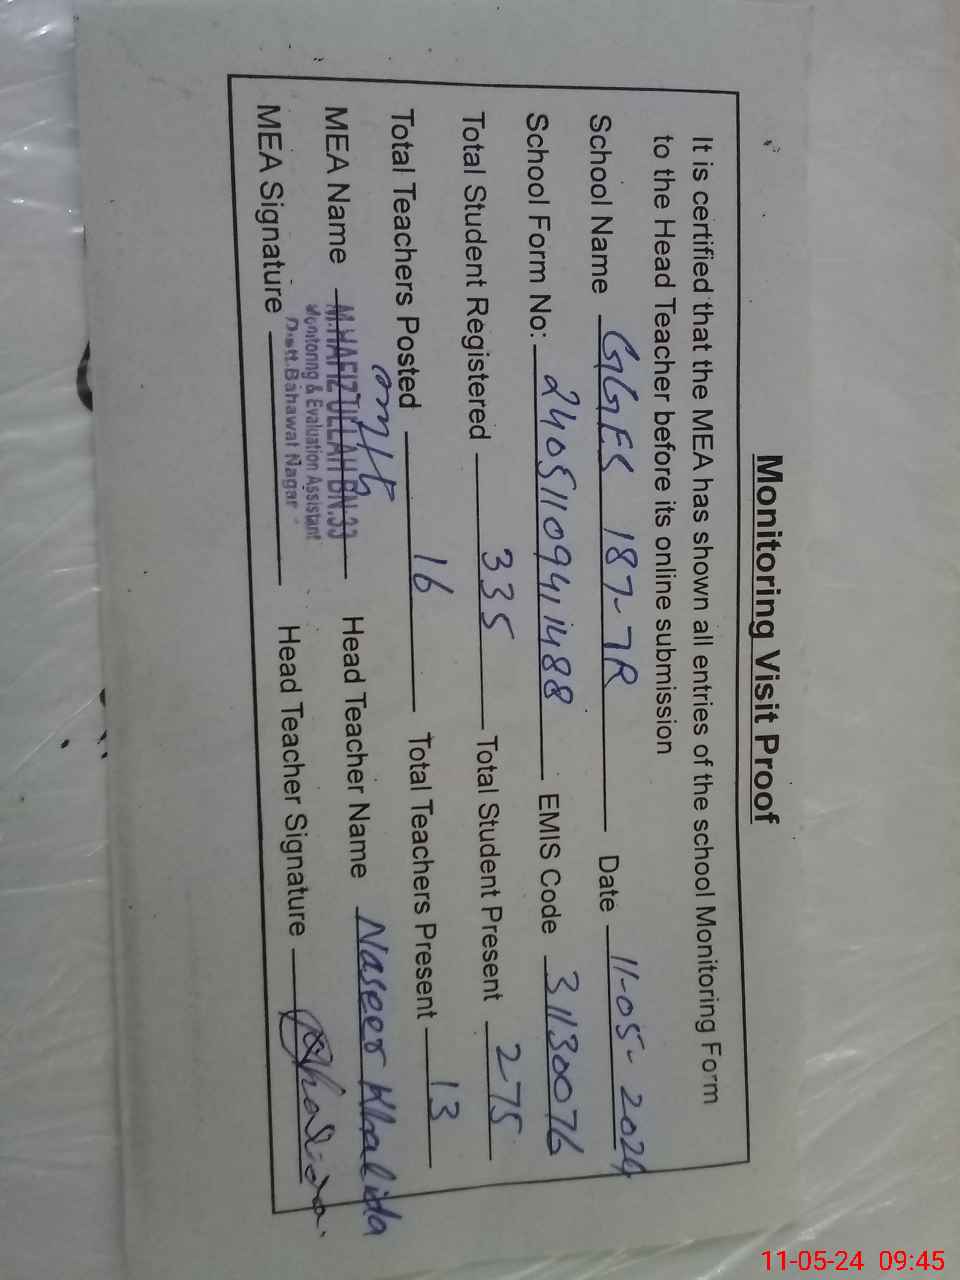 Monitoring Visit Proof
It is certified that the MEA has shown all entries of the school Monitoring Form
to the Head Teacher before its online submission
School Name GGES 187-7R Date 11-05-2024
School Form No: 24051109411488 EMIS Code 31130076
Total Student Registered 335 Total Student Present 275
Total Teachers Posted 16 Total Teachers Present 13
MEA Name M.HAFIZ ULLAH BN.33 Head Teacher Name Naseer Khalida
Monitoring & Evaluation Assistant
Distt.Bahawal Nagar
MEA Signature Head Teacher Signature Khalida
11-05-24 09:45